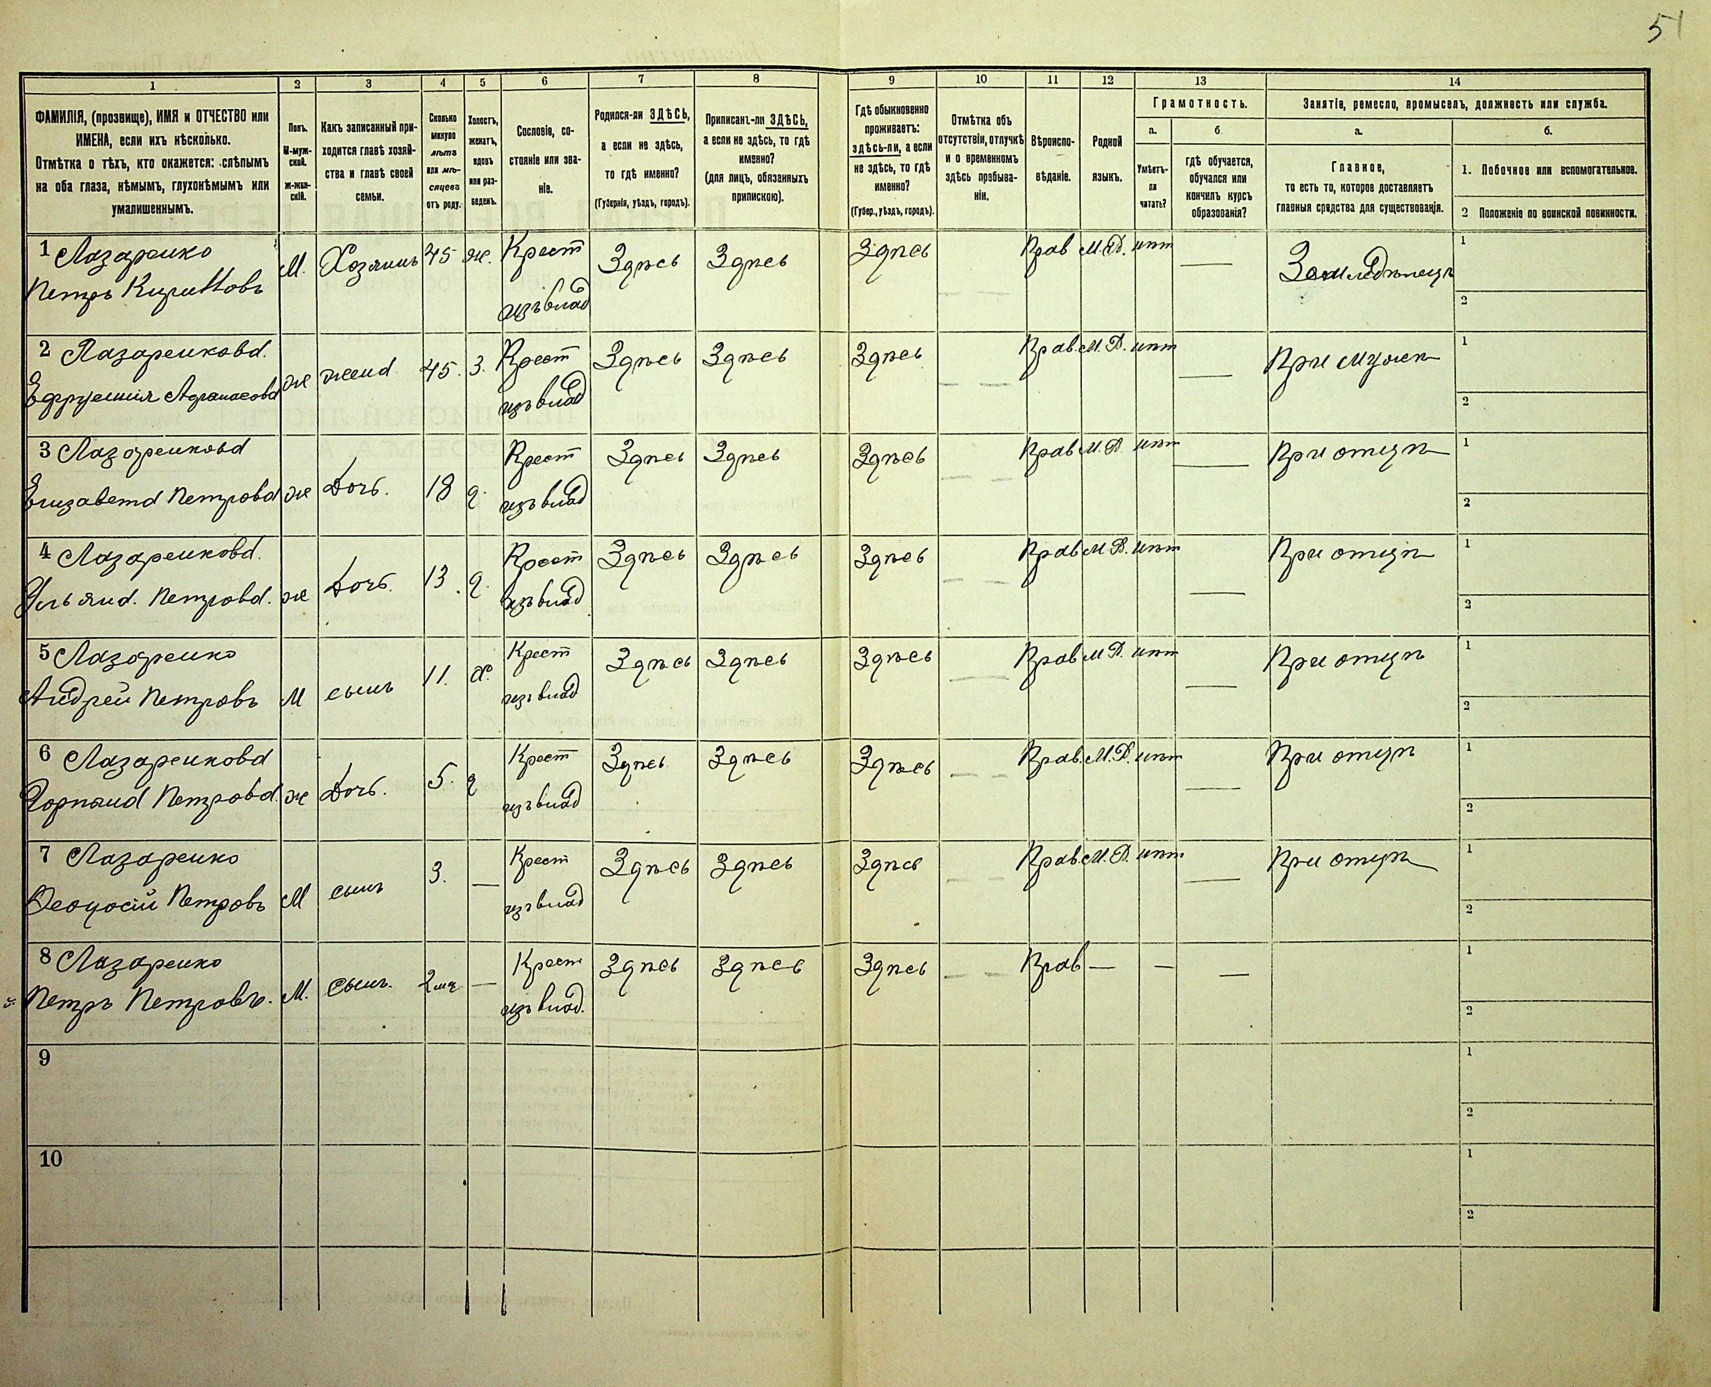 51
1
2
3
4
5
6
7
8
9
10
11
12
13
14
ФАМИЛІЯ, (прозвище), ИМЯ и ОТЧЕСТВО или
ИМЕНА, если ихъ нѣсколько.
Отмѣтка о тѣхъ, кто окажется: слѣпымъ
на оба глаза, нѣмымъ, глухонѣмымъ или
умалишеннымъ.
Полъ.
М-муж-
ской.
ж-жен-
скій.
Какъ записанный при-
ходится главѣ хозяй-
ства и главѣ своей
семьи.
Сколько
минуло
лѣтъ
или мѣ-
сяцевъ
отъ роду.
Холостъ,
женатъ,
вдовъ
или раз-
веденъ.
Сословіе, со-
стояніе или зва-
ніе.
Родился-ли ЗДѢСЬ,
а если не здѣсь,
то гдѣ именно?
(Губернія, уѣздъ, городъ).
Приписанъ-ли ЗДѢСЬ,
а если не здѣсь, то гдѣ
именно?
(для лицъ, обязанныхъ
припискою).
Гдѣ обыкновенно
проживаетъ:
здѣсь-ли, а если
не здѣсь, то гдѣ
именно?
(Губер., уѣздъ, городъ).
Отмѣтка объ
отсутствіи, отлучкѣ
и о временномъ
здѣсь пребыва-
ніи.
Вѣроиспо-
вѣданіе.
Родной
языкъ.
Грамотность.
а.
Умѣетъ-
ли
читать?
б
гдѣ обучается,
обучался или
кончилъ курсъ
образованія?
Занятіе, ремесло, промыселъ, должность или служба.
а.
Главное,
то есть то, которое доставляетъ
главныя средства для существованія.
б.
1. Побочное или вспомогательное.
2 Положеніе по воинской повинности.
1 Лазаренко
Петръ Кирилловъ
М. Хозяинъ 45 ж. Крест
изъ влад
Здѣсь Здѣсь Здѣсь Прав М.Р. нѣт — Земледѣлецъ
1
2
2 Лазаренкова.
Ефрусинія Афанасова
ж жена 45. З. Крест
изъ влад
Здѣсь Здѣсь Здѣсь — — Прав. М.Р. нѣт — При мужѣ
1
2
3 Лазаренкова
Елизавета Петрова
ж Дочь. 18 д. Крест
изъ влад
Здѣсь Здѣсь Здѣсь — — Прав М.Р. нѣт — При отцѣ
1
2
4 Лазаренкова.
Ульяна. Петрова.
ж Дочь. 13. д. Крест
изъ влад
Здѣсь Здѣсь Здѣсь — — Прав М.Р. нѣт — При отцѣ
1
2
5 Лазаренко
Андрей Петровъ
М сынъ 11. х. Крест
изъ влад
Здѣсь Здѣсь Здѣсь — Прав М.Р. нѣт — При отцѣ
1
2
6 Лазаренкова
Горпина Петрова.
ж Дочь. 5. д Крест
изъ влад
Здѣсь. Здѣсь Здѣсь — — Прав. М.Р. нѣт — При отцѣ
1
2
7 Лазаренко
Ѳеодосій Петровъ
М сынъ 3. — Крест
изъ влад
Здѣсь Здѣсь Здѣсь — — Прав М.Р. нѣт — При отцѣ
1
2
8 Лазаренко
Петръ Петровъ.
М. сынъ. 2 мѣ — Крест
изъ влад.
Здѣсь Здѣсь Здѣсь — — Прав — — —
1
2
9
1
2
10
1
2